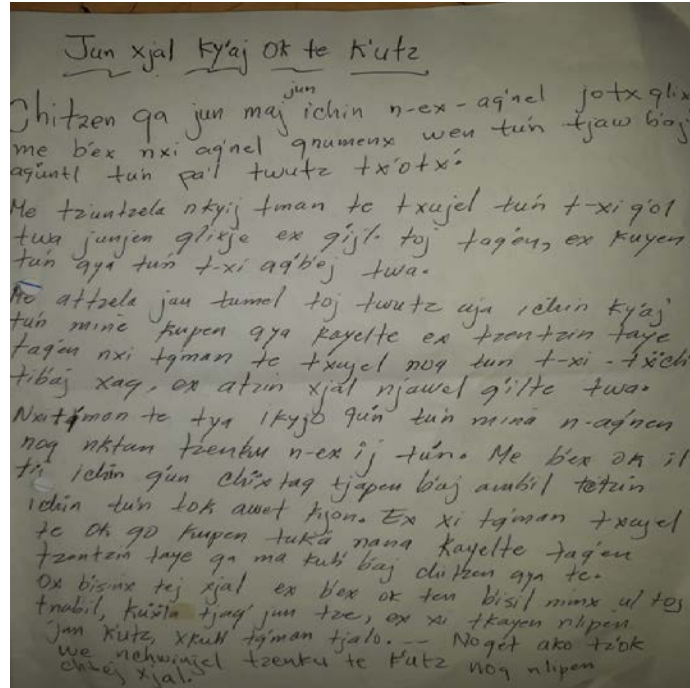 Jun xjal ky'aj ok te k'utz
Chitzen qa jun maj jun ichin n-ex-aq'nel jotx qlix
me b'ex nxi aq'nel qnumenx wen tu'n tjaw b'aj
aq'untl tu'n pa'l twutz tx'otx'.
Me tzuntzela nkyij tman te txujel tu'n t-xi q'ol
twa junjen qlixje ex q'ijl toj taq'en, ex kuyen
tu'n qya tu'n t-xi aq'b'ej twa.
Me attzela jau tumel toj twutz aja ichin ky'aj
tu'n mine kupen qya kayelte ex tzentzin taye
taq'en nxi tq'man te txujel noq tun t-xi - txich
tibaj xaq, ex atzin xjal njawel q'ilte twa.
Nxi tq'man te tya ikyjo qu'n tu'n mina n-aq'nen
noq nktan tzenku n-ex ij tu'n. Me b'ex ok il
ti'j ichin qun chix taq tjapen b'aj ambil tetzin
ichin tu'n tok awet kjon. Ex xi tq'man txujel
te ok qo kupen tuka nana kayelte taq'en
tzentzin taye qa ma kub' baj chitzen qya te.
Ox bisunx tej xjal ex b'ex ok ten bisil nimx ul toj
tnabil, kuxla tjaq' jun tze, ex xi tkayen nlipen
jun k'utz, xkub' tq'man tjalo. -- Noqet ako tz'ok
we nchwinqel tzenku te k'utz noq nlipen
chtej xjal.